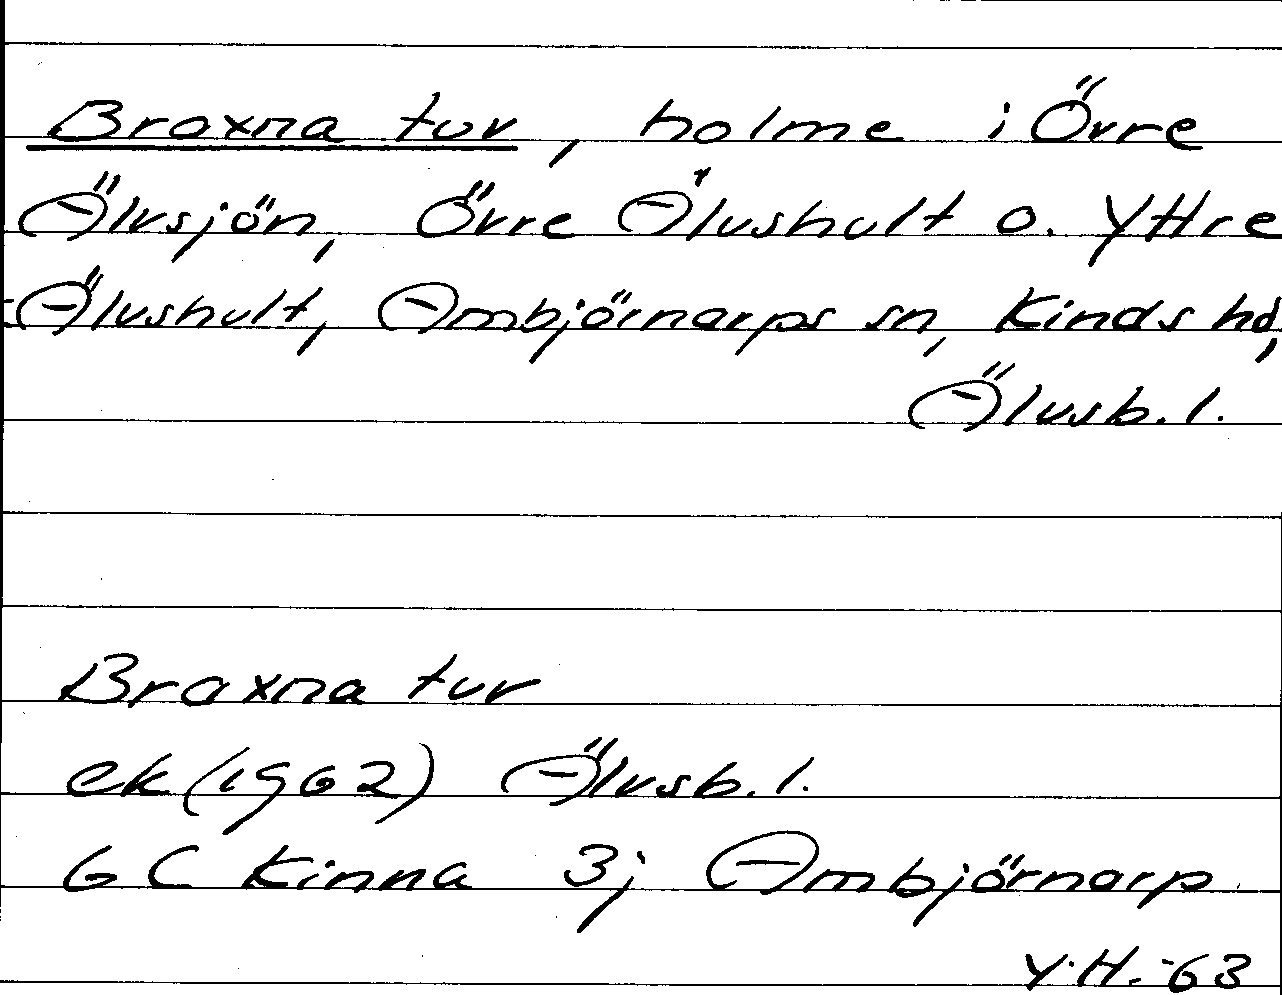 Braxna tuv, holme i Övre
Älvsjön, Övre Älvshult o. Yttre
Älvshult, Ambjörnarps sn, Kinds hd,
Älvsb. l.
Braxna tuv
ek (1962) Älvsb. l.
6 C Kinna 3j Ambjörnarp
Y.H. -63